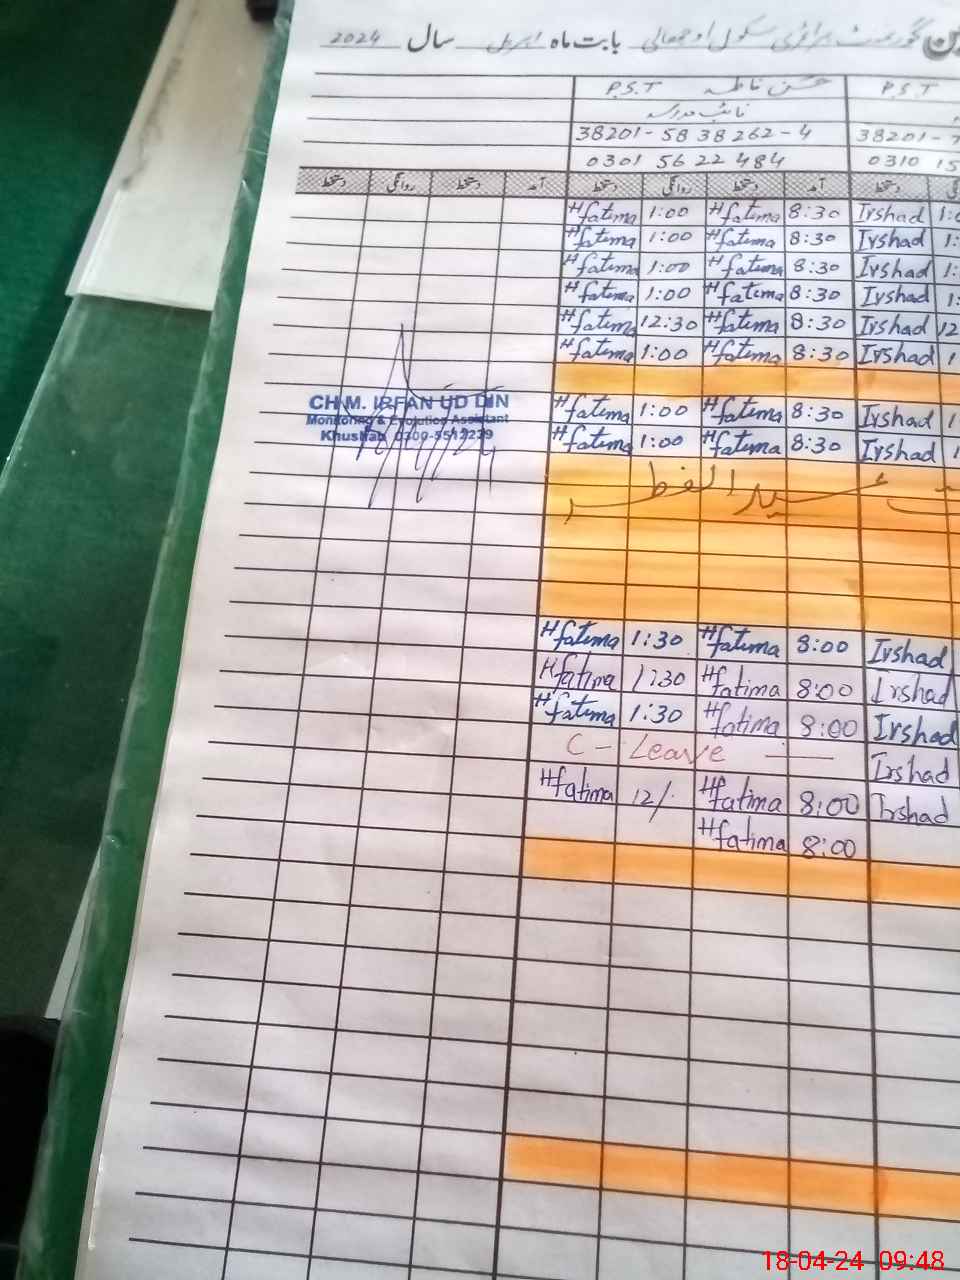 گورنمنٹ پرائمری سکول اوچھالی بابت ماہ اپریل سال 2024
P.S.T P.S.T
نائب مدرسہ
38201-5838262-4 38201-7
0301 5622484 0310 15
دستخط آمد دستخط روانگی دستخط آمد دستخط روانگی دستخط
Irshad 8:30 Hfatima 1:00 Hfatima
Irshad 8:30 Hfatima 1:00 Hfatima
Irshad 8:30 Hfatima 1:00 Hfatima
Irshad 8:30 Hfatima 1:00 Hfatima
Irshad 8:30 Hfatima 12:30 Hfatima
Irshad 8:30 Hfatima 1:00 Hfatima
Irshad 8:30 Hfatima 1:00 Hfatima
Irshad 8:30 Hfatima 1:00 Hfatima
CH.M. IRFAN UD DIN
Monitoring & Evolution Assistant
Khushab 0300-5512229
عید الفطر
Irshad 8:00 Hfatima 1:30 Hfatima
Irshad 8:00 Hfatima 1:30 Hfatima
Irshad 8:00 Hfatima 1:30 Hfatima
C - Leave
Irshad
Irshad 8:00 Hfatima 12/. Hfatima
8:00 Hfatima
18-04-24 09:48